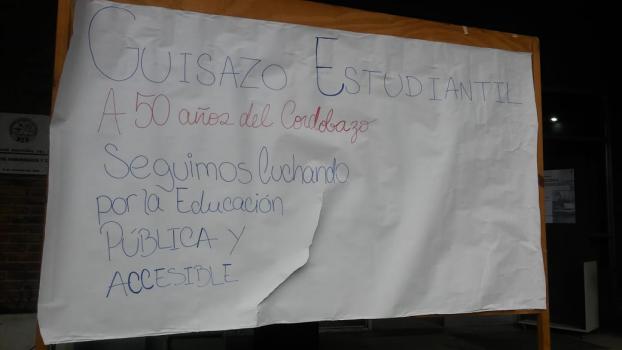 GUISAZO ESTUDIANTIL
A 50 años del Cordobazo
Seguimos luchando
por la Educación
PÚBLICA Y
ACCESIBLE